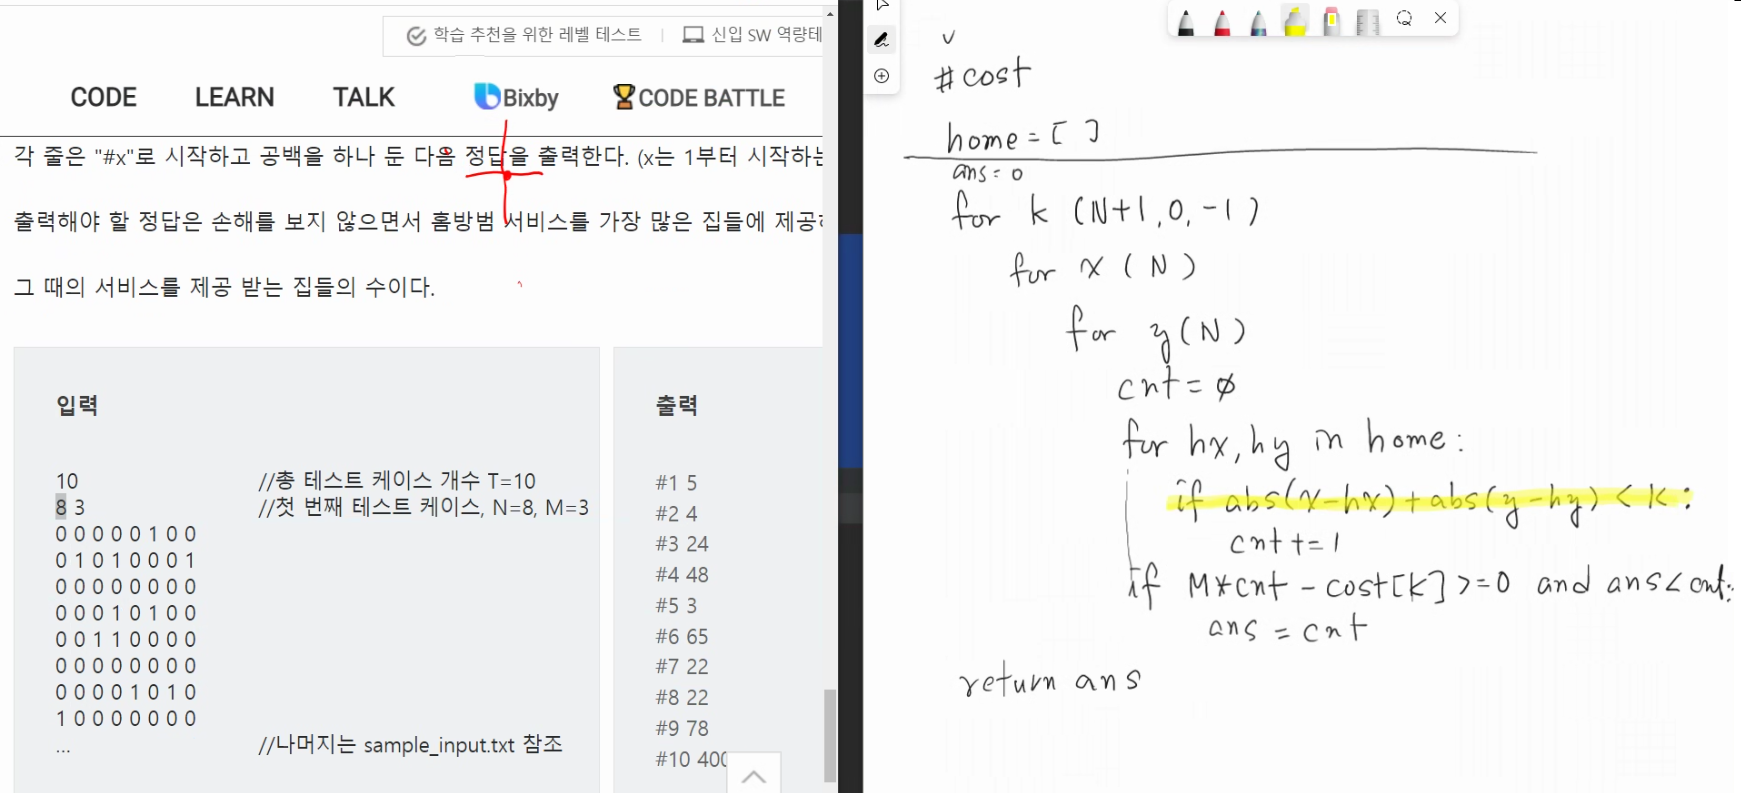 학습 추천을 위한 레벨 테스트 | 신입 SW 역량테
CODE LEARN TALK Bixby CODE BATTLE
각 줄은 "#x"로 시작하고 공백을 하나 둔 다음 정답을 출력한다. (x는 1부터 시작하는
출력해야 할 정답은 손해를 보지 않으면서 홈방범 서비스를 가장 많은 집들에 제공하
그 때의 서비스를 제공 받는 집들의 수이다.
입력
10 //총 테스트 케이스 개수 T=10
8 3 //첫 번째 테스트 케이스, N=8, M=3
0 0 0 0 0 1 0 0
0 1 0 1 0 0 0 1
0 0 0 0 0 0 0 0
0 0 0 1 0 1 0 0
0 0 1 1 0 0 0 0
0 0 0 0 0 0 0 0
0 0 0 0 1 0 1 0
1 0 0 0 0 0 0 0
... //나머지는 sample_input.txt 참조
출력
#1 5
#2 4
#3 24
#4 48
#5 3
#6 65
#7 22
#8 22
#9 78
#10 400
# cost
home = [ ]
ans = 0
for k (N+1, 0, -1)
for x (N)
for y (N)
cnt = 0
for hx, hy in home:
if abs(x-hx) + abs(y-hy) < k:
cnt += 1
if M*cnt - cost[k] >= 0 and ans < cnt:
ans = cnt
return ans